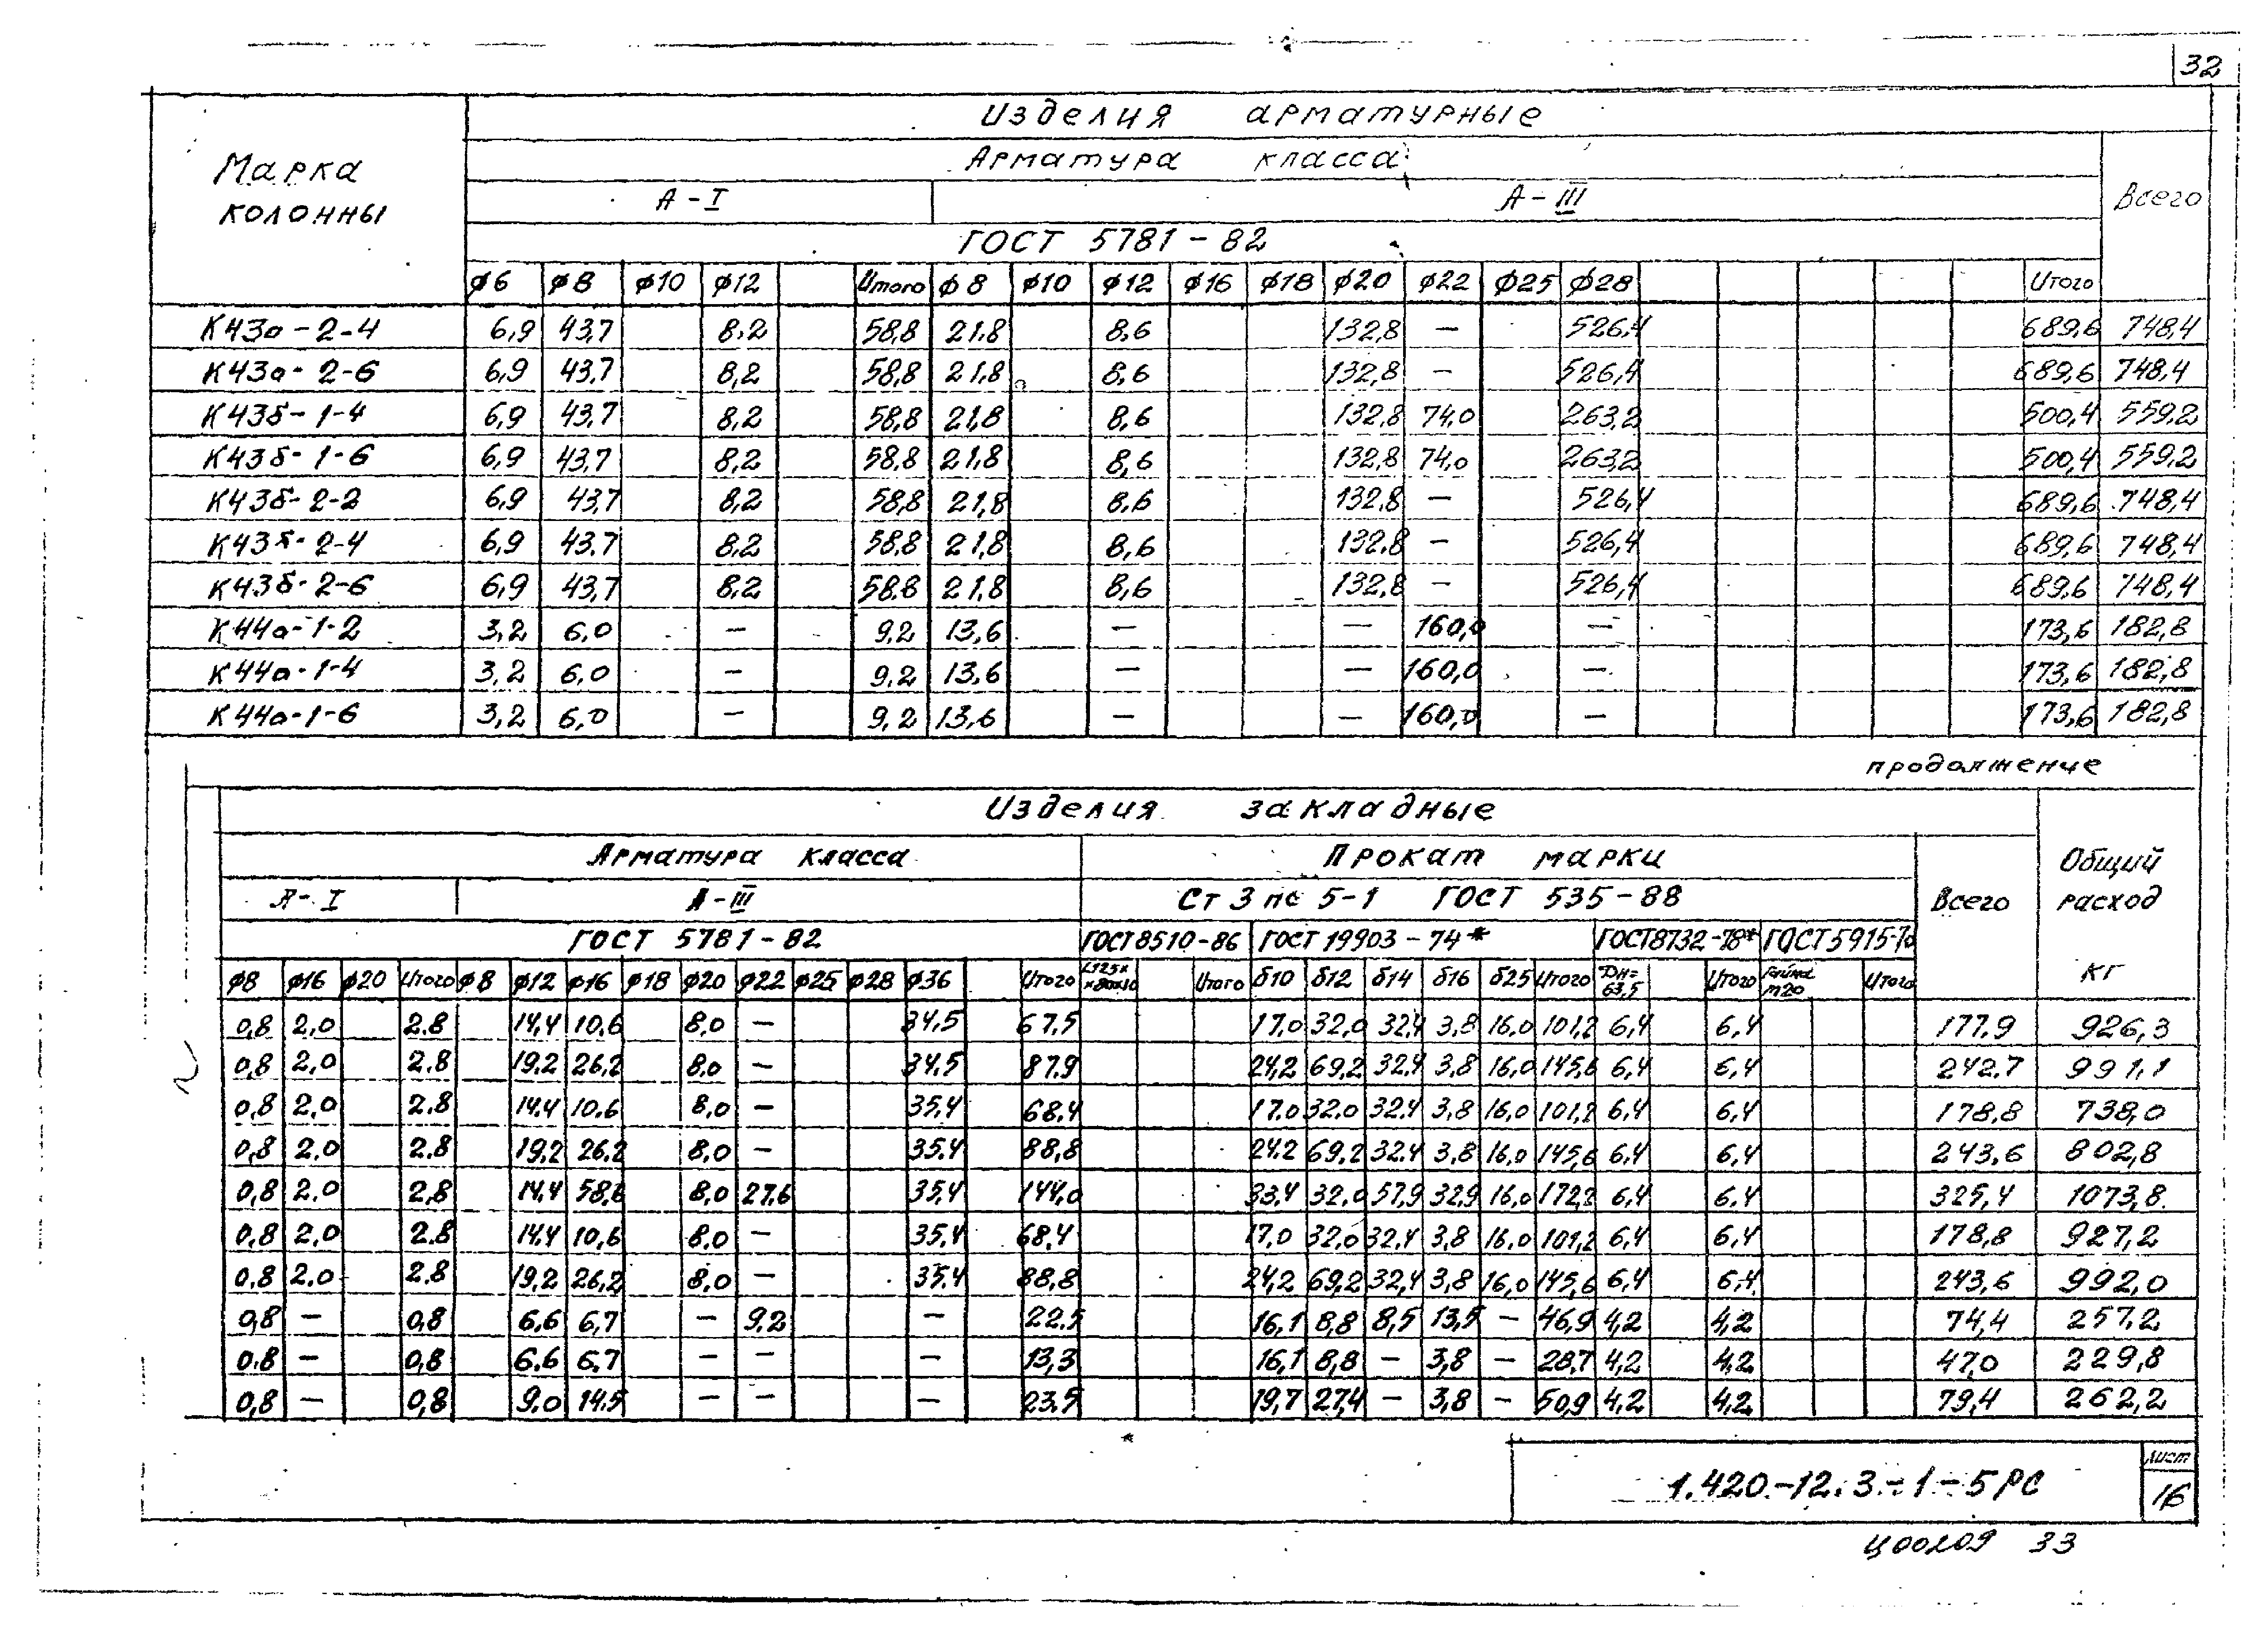 32
Изделия арматурные
Марка колонны
Арматура класса
Всего
А-I А-III
ГОСТ 5781-82
ф6 ф8 ф10 ф12 Итого ф8 ф10 ф12 ф16 ф18 ф20 ф22 ф25 ф28 Итого
К43а-2-4 6,9 43,7 8,2 58,8 21,8 8,6 132,8 — 526,4 689,6 748,4
К43а-2-6 6,9 43,7 8,2 58,8 21,8 8,6 132,8 — 526,4 689,6 748,4
К43б-1-4 6,9 43,7 8,2 58,8 21,8 8,6 132,8 74,0 263,2 500,4 559,2
К43б-1-6 6,9 43,7 8,2 58,8 21,8 8,6 132,8 74,0 263,2 500,4 559,2
К43б-2-2 6,9 43,7 8,2 58,8 21,8 8,6 132,8 — 526,4 689,6 748,4
К43б-2-4 6,9 43,7 8,2 58,8 21,8 8,6 132,8 — 526,4 689,6 748,4
К43б-2-6 6,9 43,7 8,2 58,8 21,8 8,6 132,8 — 526,4 689,6 748,4
К44а-1-2 3,2 6,0 — 9,2 13,6 — — 160,0 — 173,6 182,8
К44а-1-4 3,2 6,0 — 9,2 13,6 — — 160,0 — 173,6 182,8
К44а-1-6 3,2 6,0 — 9,2 13,6 — — 160,0 — 173,6 182,8
продолжение
Изделия закладные
Арматура класса Прокат марки Всего Общий расход кг
А-I А-III Ст 3 пс 5-1 ГОСТ 535-88
ГОСТ 5781-82 ГОСТ 8510-86 ГОСТ 19903-74* ГОСТ 8732-78* ГОСТ 5915-70
ф8 ф16 ф20 Итого ф8 ф12 ф16 ф18 ф20 ф22 ф25 ф28 ф36 Итого L125х х80х10 Итого δ10 δ12 δ14 δ16 δ25 Итого Дн= 63,5 Итого Гайка М20 Итого
0,8 2,0 2,8 14,4 10,6 8,0 — 34,5 67,5 17,0 32,0 32,4 3,8 16,0 101,2 6,4 6,4 177,9 926,3
0,8 2,0 2,8 19,2 26,2 8,0 — 34,5 87,9 24,2 69,2 32,4 3,8 16,0 145,6 6,4 6,4 242,7 991,1
0,8 2,0 2,8 14,4 10,6 8,0 — 35,4 68,4 17,0 32,0 32,4 3,8 16,0 101,2 6,4 6,4 178,8 738,0
0,8 2,0 2,8 19,2 26,2 8,0 — 35,4 88,8 24,2 69,2 32,4 3,8 16,0 145,6 6,4 6,4 243,6 802,8
0,8 2,0 2,8 14,4 58,6 8,0 27,6 35,4 144,0 33,4 32,0 57,9 32,9 16,0 172,2 6,4 6,4 325,4 1073,8
0,8 2,0 2,8 14,4 10,6 8,0 — 35,4 68,4 17,0 32,0 32,4 3,8 16,0 101,2 6,4 6,4 178,8 927,2
0,8 2,0 2,8 19,2 26,2 8,0 — 35,4 88,8 24,2 69,2 32,4 3,8 16,0 145,6 6,4 6,4 243,6 992,0
0,8 — 0,8 6,6 6,7 — 9,2 — 22,5 16,1 8,8 8,5 13,5 — 46,9 4,2 4,2 74,4 257,2
0,8 — 0,8 6,6 6,7 — — — 13,3 16,1 8,8 — 3,8 — 28,7 4,2 4,2 47,0 229,8
0,8 — 0,8 9,0 14,5 — — — 23,5 19,7 27,4 — 3,8 — 50,9 4,2 4,2 79,4 262,2
1.420-12.3-1-5РС
лист
16
Ц00209 33